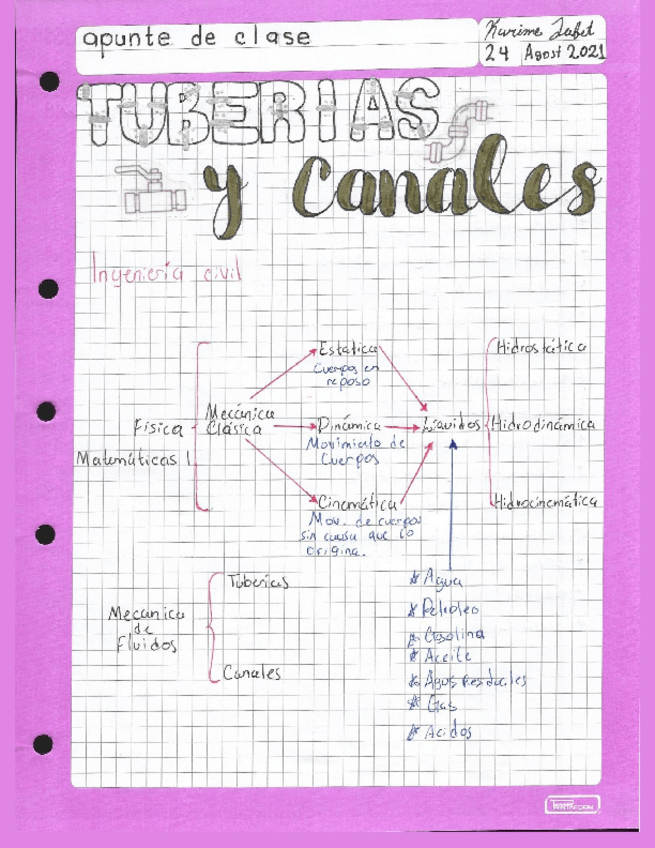 apunte de clase
Karime Jafet
24 Agost 2021
TUBERIAS
y Canales
Ingeniería civil
Física
Matemáticas
Mecánica
Clásica
Estatica
Cuerpos en
reposo
Dinámica
Movimiento de
Cuerpos
Cinemática
Mov. de cuerpos
sin causa que lo
origina.
Liquidos
Hidrostática
Hidrodinámica
Hidrocinemática
* Agua
* Petroleo
* Gasolina
* Aceite
* Aguas Residuales
* Gas
* Acidos
Mecanica
de
Fluidos
Tuberias
Canales